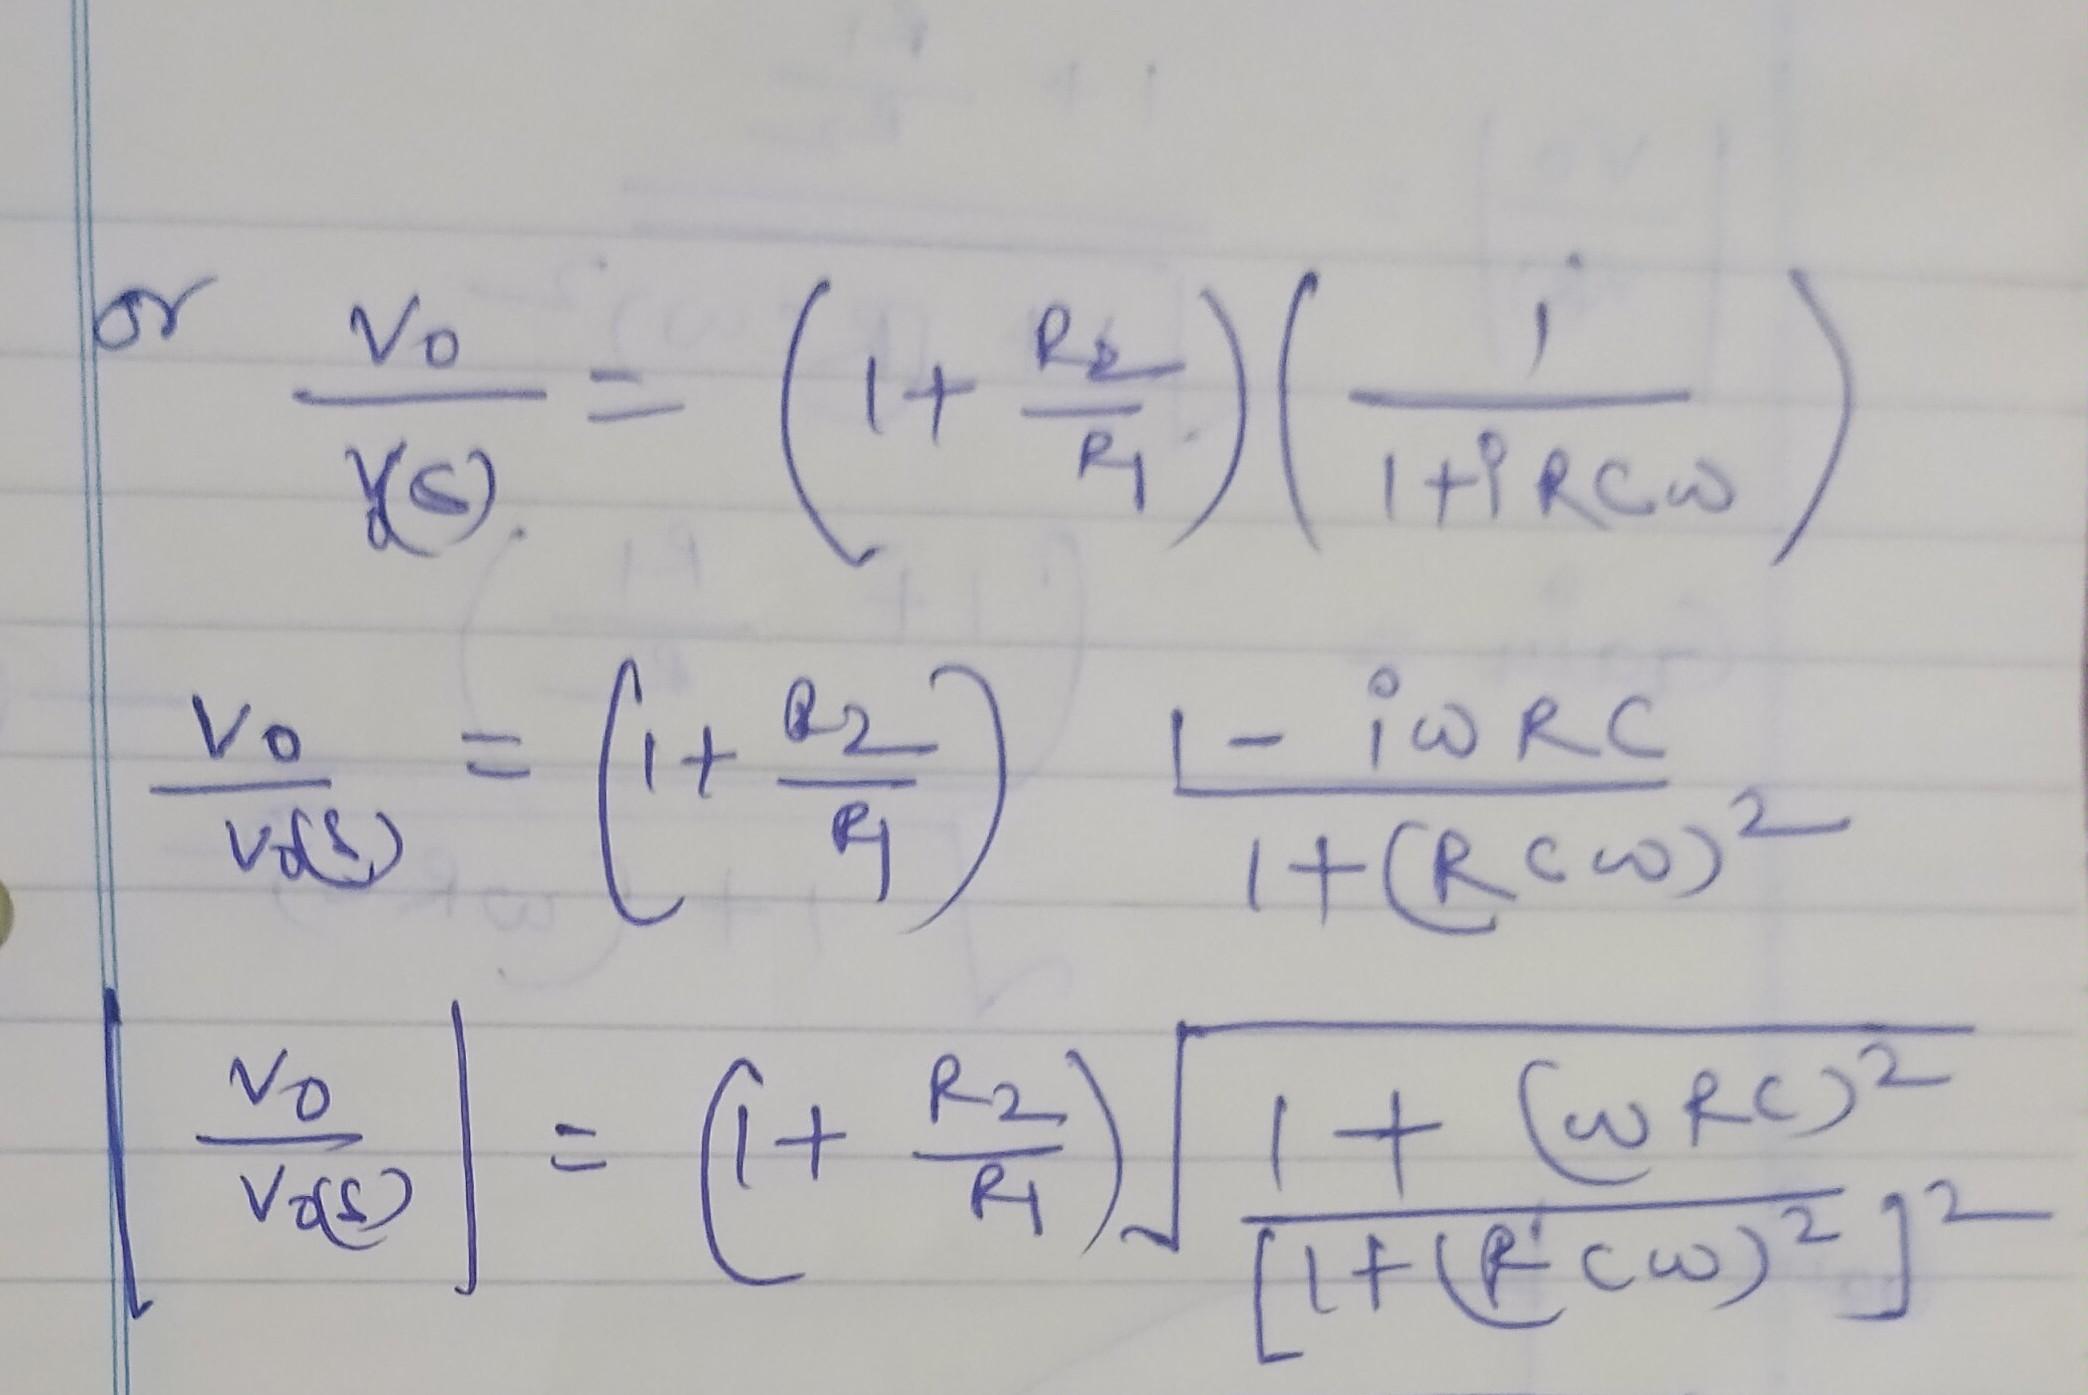 or V0/V(s) = (1 + R2/R1) (1/(1+iRCω))
V0/V0(s) = (1 + R2/R1) (1 - iωRC)/(1+(RCω)²)
|V0/V0(s)| = (1 + R2/R1) √((1 + (ωRC)²)/[1+(RCω)²]²)